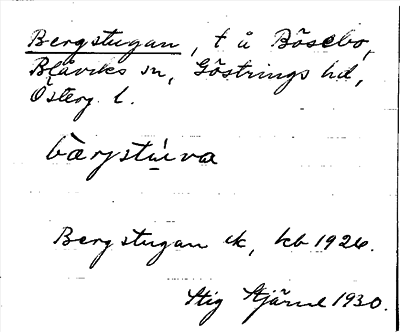 Bergstugan, t å Bösebo,
Blåviks sn, Göstrings hd,
Österg. l.
bàrjstúva
Bergstugan ek, kb 1926.
Stig Stjärne 1930.